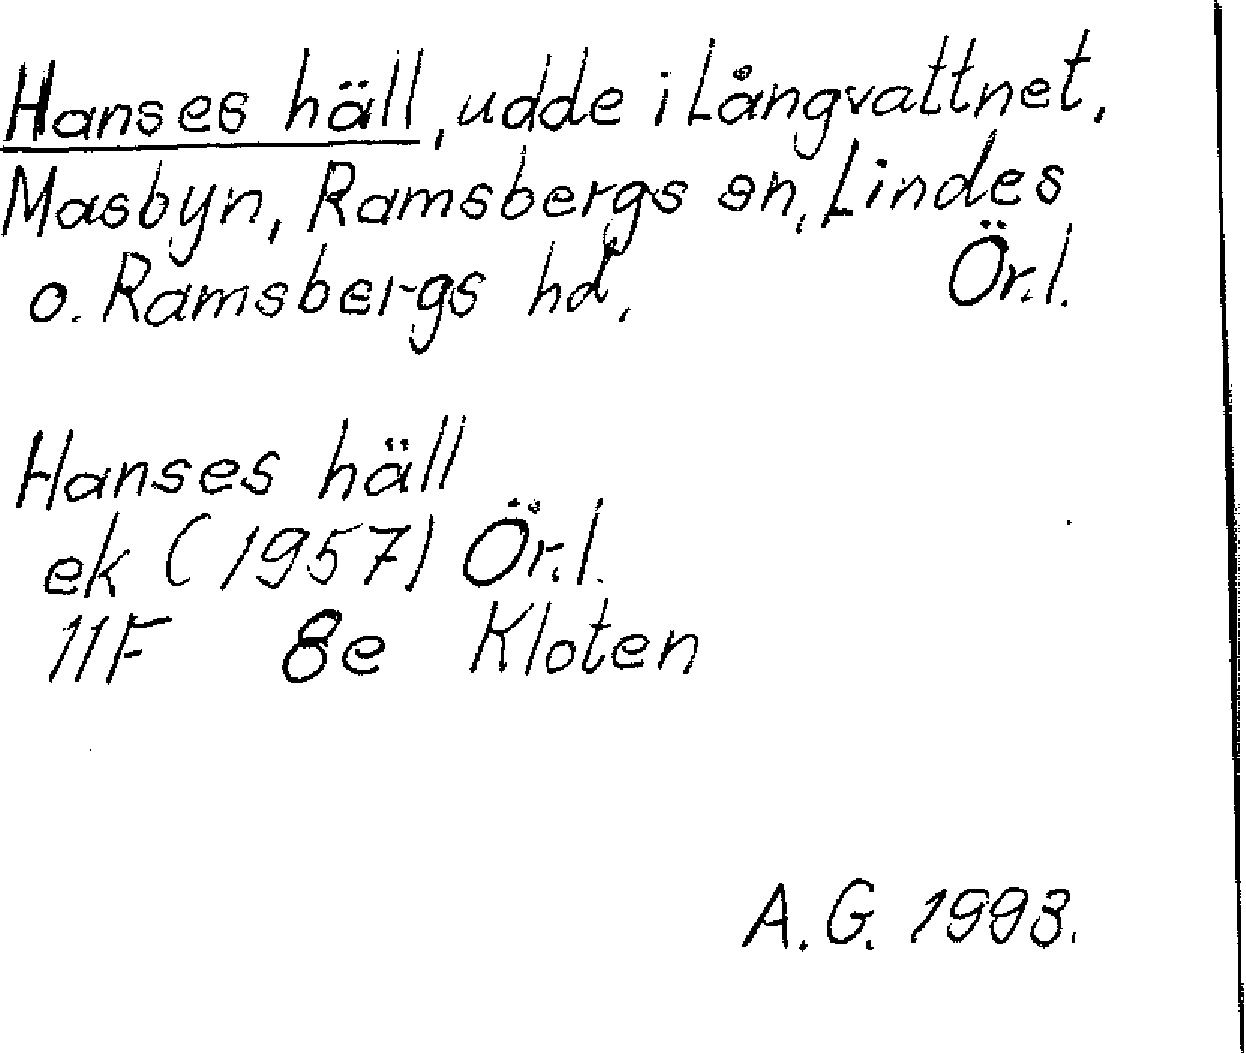 Hanses häll, udde i Långvattnet,
Masbyn, Ramsbergs sn, Lindes
o. Ramsbergs hd, Ör.l.
Hanses häll
ek (1957) Ör.l.
11F 8e Kloten
A.G. 1993.